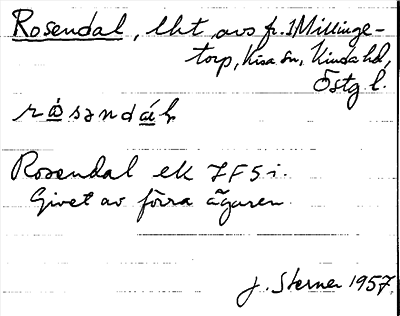 Rosendal, lht avs fr. 1 Millinge-
torp, Kisa sn, Kinda hd,
Östg l.
Rosendal ek 7F5i.
Givet av förra ägaren.
J. Sterner 1957.